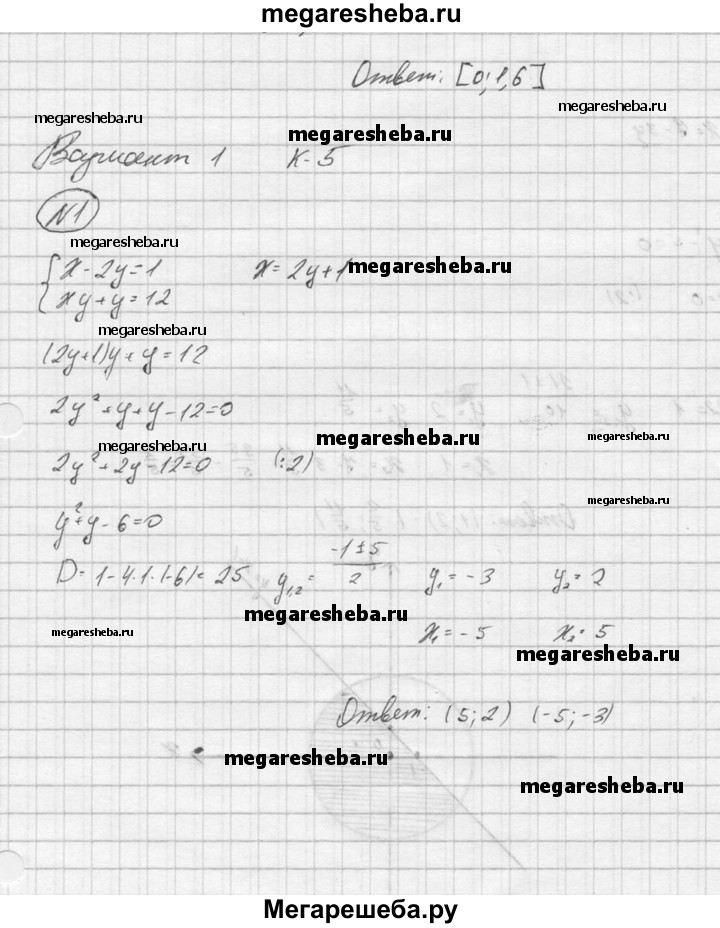 megaresheba.ru
Ответ: [0;1,6]
megaresheba.ru
megaresheba.ru
megaresheba.ru
Вариант 1 К-5
№1
megaresheba.ru
{ x - 2y = 1 x = 2y + 1 megaresheba.ru
xy + y = 12
megaresheba.ru
(2y+1)y + y = 12
2y² + y + y - 12 = 0
megaresheba.ru
megaresheba.ru
megaresheba.ru
2y² + 2y - 12 = 0 (:2)
megaresheba.ru
y² + y - 6 = 0
D = 1 - 4·1·(-6) = 25 y₁,₂ = (-1±5)/2 y₁ = -3 y₂ = 2
megaresheba.ru
megaresheba.ru
x₁ = -5 x₂ = 5
megaresheba.ru
Ответ: (5; 2) (-5; -3)
megaresheba.ru
megaresheba.ru
Мегарешеба.ру